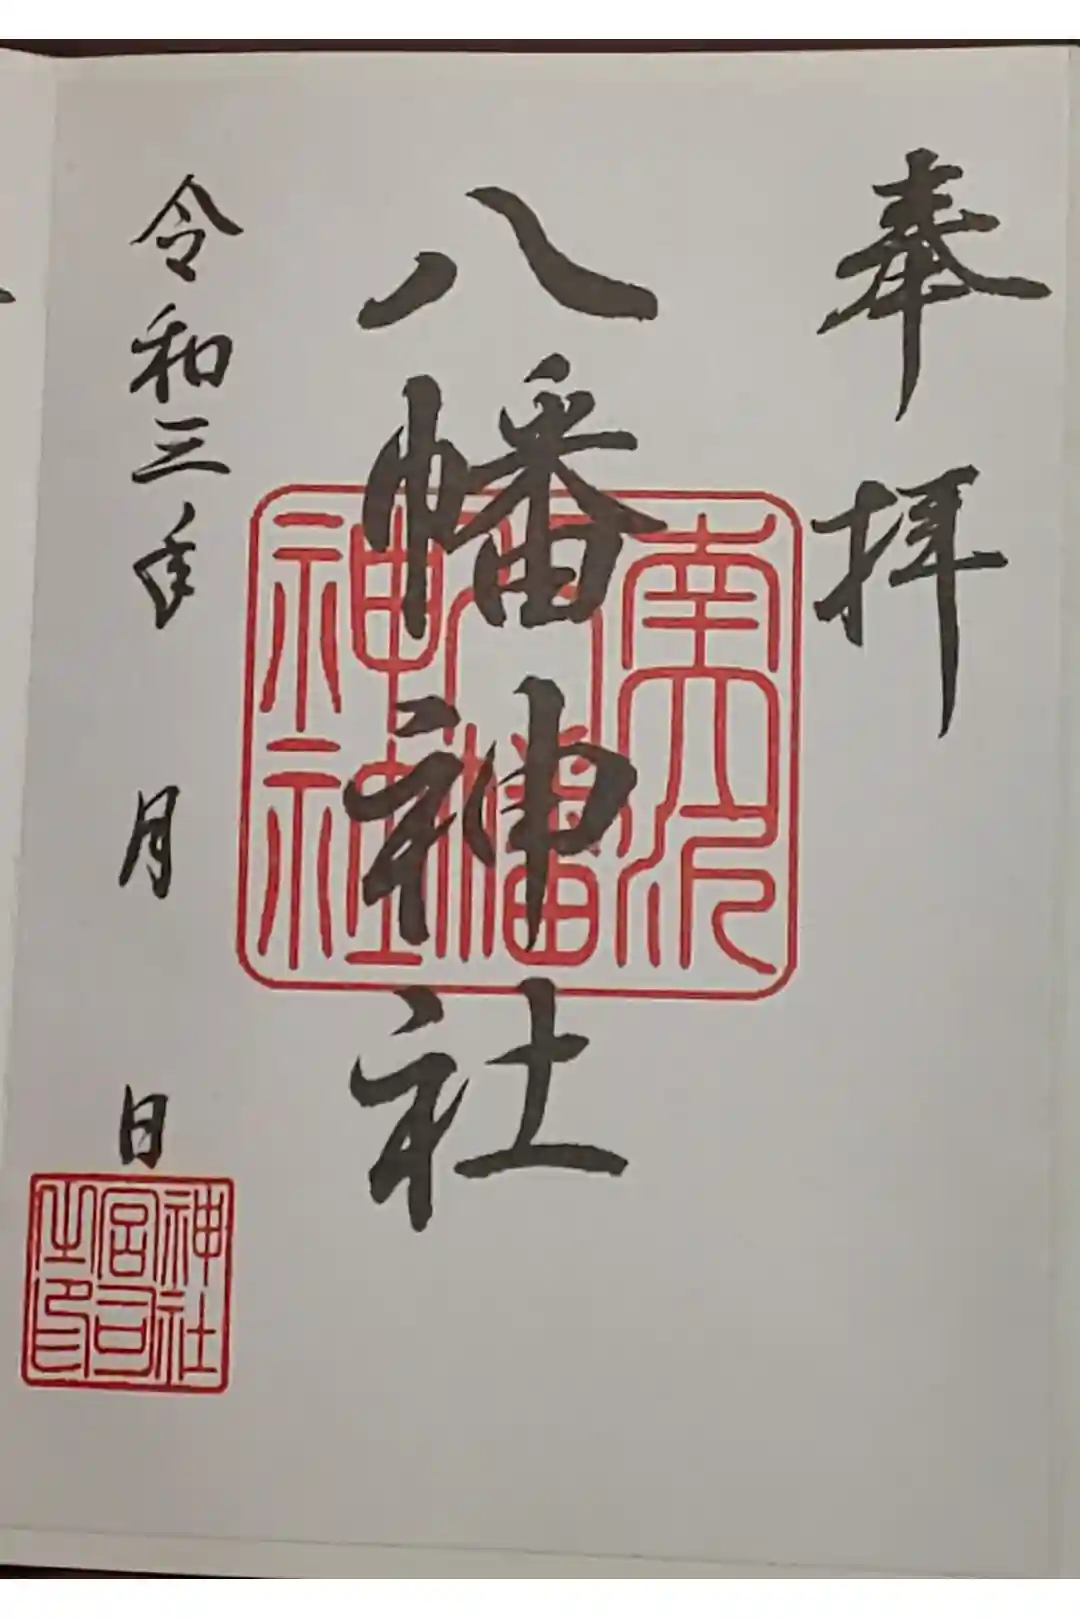 奉拝
八幡神社
南大沢
八幡
神社
令和三年 月 日
神社
宮司
之印